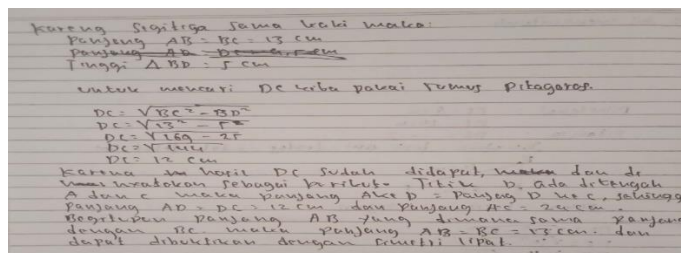 Karena Segitiga sama kaki maka:
Panjang AB = BC = 13 cm
Panjang AD = DC
Tinggi △ BD = 5 cm
untuk mencari DC kita pakai rumus Pitagoras.
DC = √BC² - BD²
DC = √13² - 5²
DC = √169 - 25
DC = √144
DC = 12 cm
Karena hasil DC sudah didapat, dan di
nyatakan sebagai berikut. Titik D ada ditengah
A dan C maka panjang A ke D = panjang D ke C, sehingga
panjang AD = DC = 12 cm dan panjang AC = 24 cm
Begitupun panjang AB yang dimana sama panjang
dengan BC. maka panjang AB = BC = 13 cm. dan
dapat dibuktikan dengan simetri lipat.